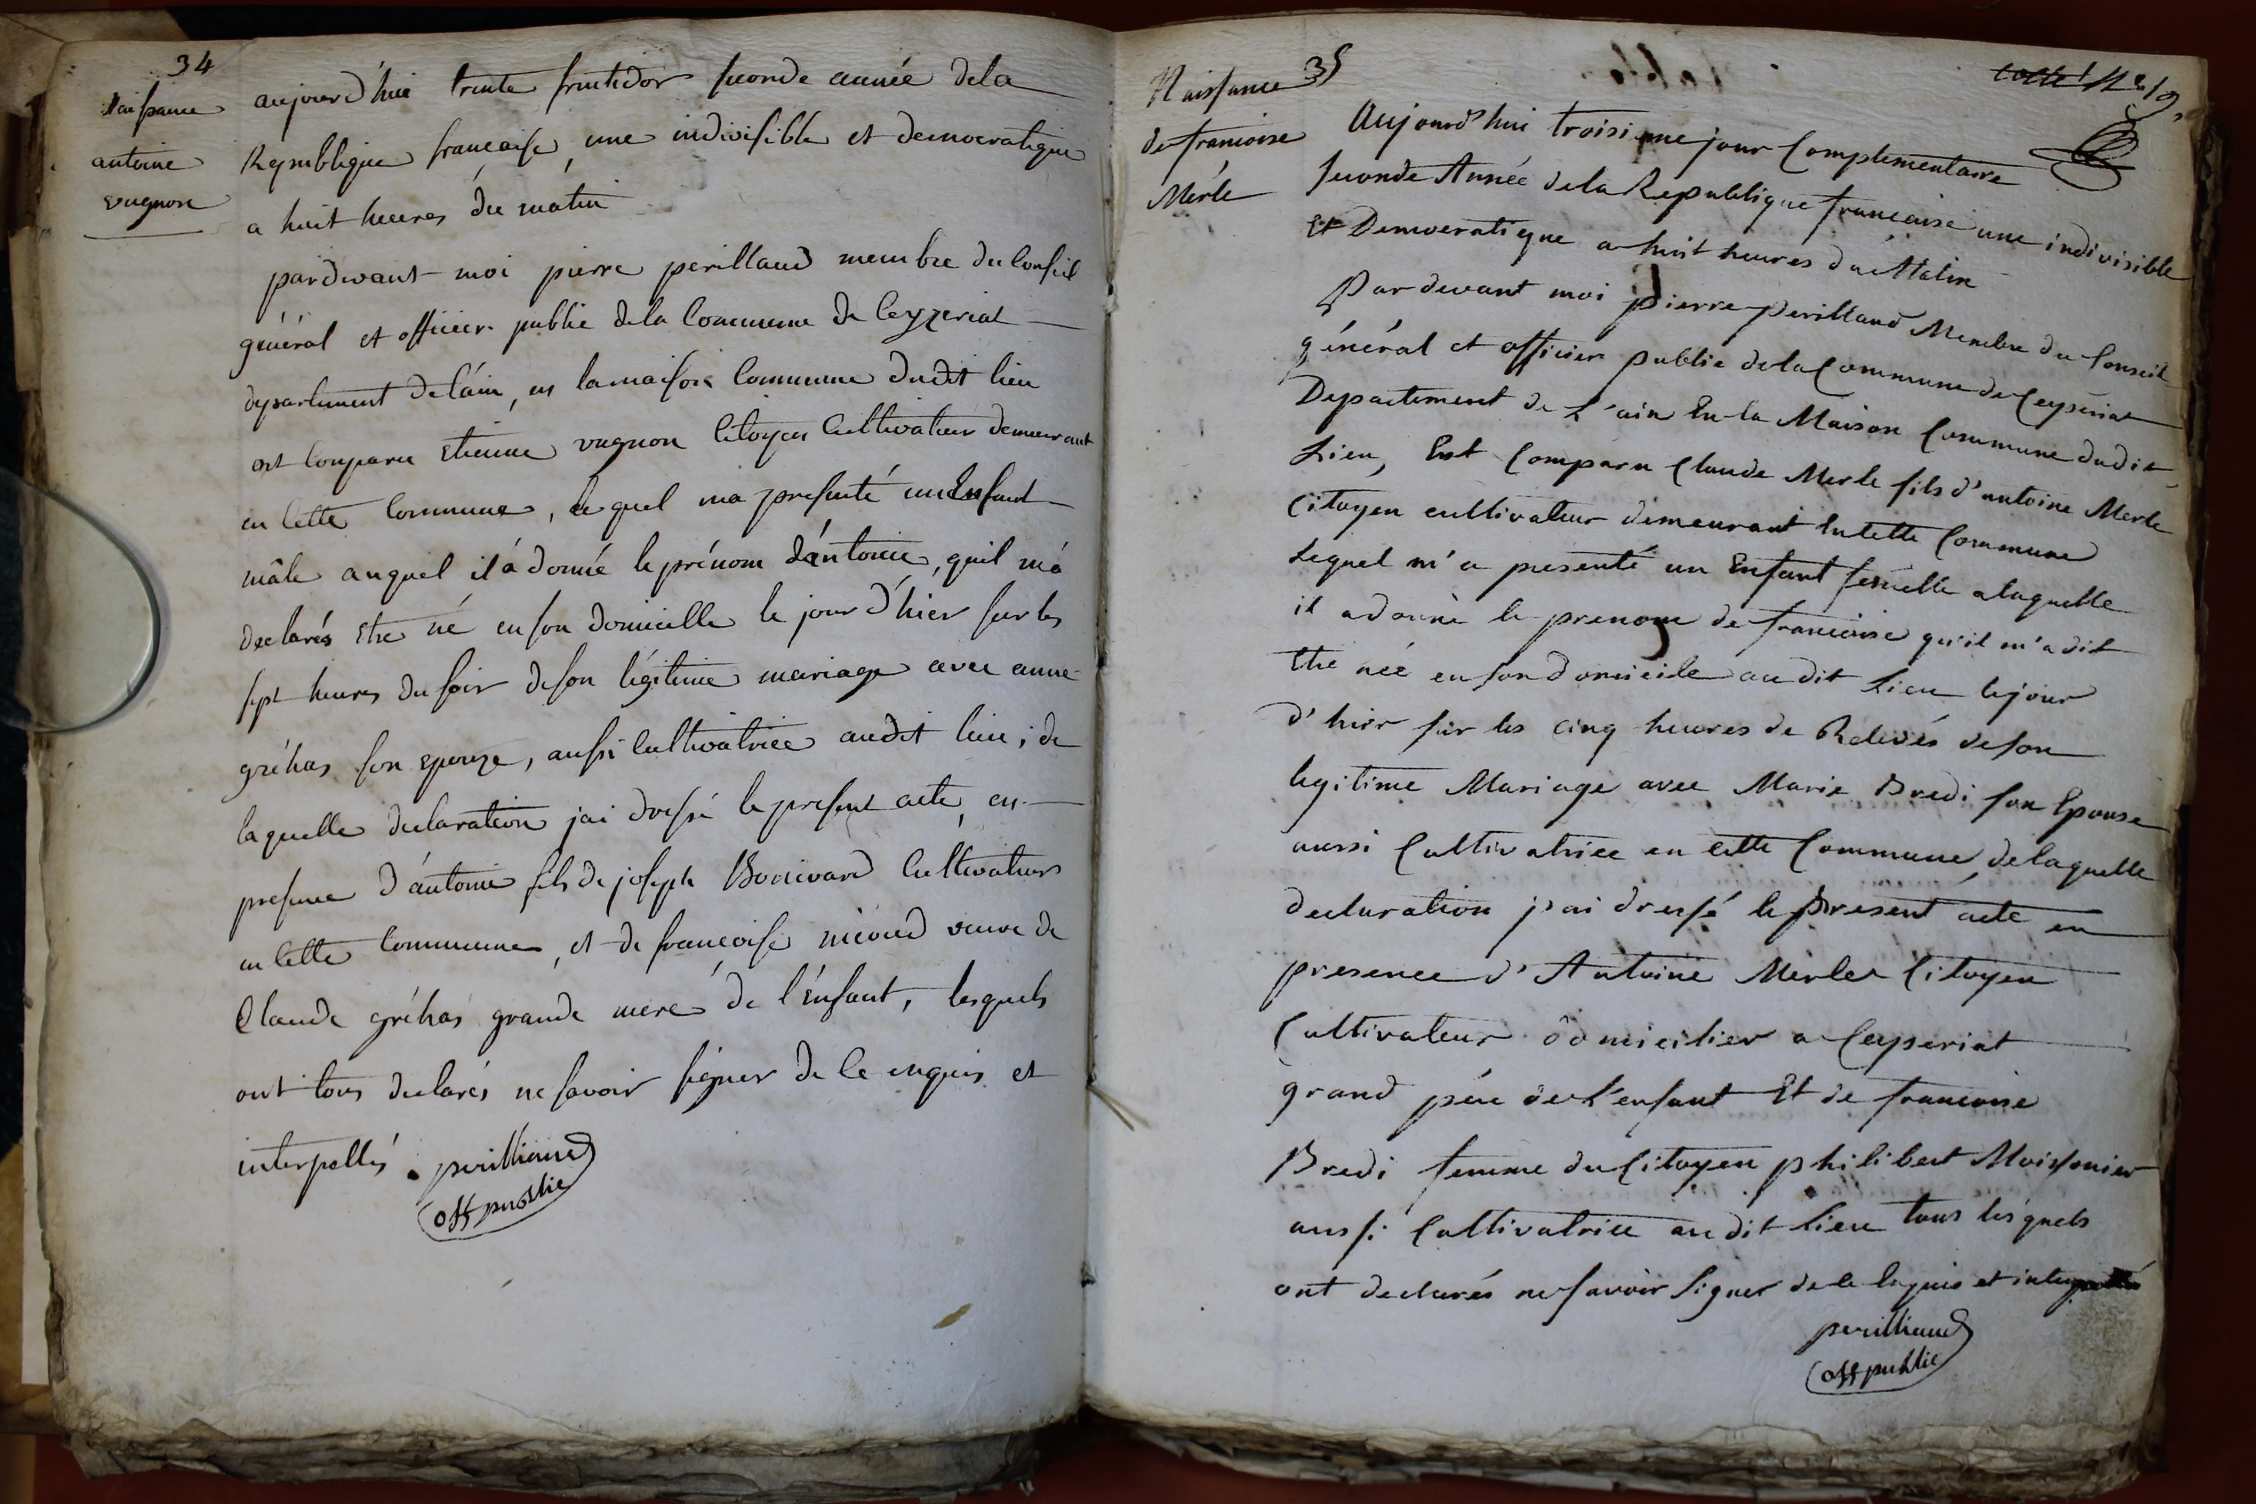 34
Naissance
antoine
vugnon
aujourd'hui trente fructidor seconde année dela
Republique francaise, une indivisible et democratique
a huit heures du matin
pardevant moi pierre perillaud membre du Conseil
général et officier public dela Commune de Ceyzeriat
departement de l'ain, en la maison Commune dudit lieu
est Comparu Etienne vugnon Citoyen Cultivateur demeurant
en Cette Commune, lequel ma presenté un Enfant
mâle auquel il á donné le prénom d'antoine, quil má
declarés etre né en son domicille le jour d'hier sur les
sept heures du soir de son légitime mariage avec anne
gréhas son epouze, aussi Cultivatrice audit lieu; de
laquelle declaration jai dressé le present acte, en
presence d'antoine fils de joseph Bouivard Cultivateurs
en Cette Commune, et de francoise niévied veuve de
Claude gréhas grande mere de l'énfant, lesquels
ont tous declarés ne savoir signer de Ce enquis et
interpellés. perilliaud
off public
35
Naissance
de francoise
Merle
Aujourd'hui troisieme jour Complementaire
seconde Année dela Republique francaise une indivisible
Et Democratique a huit heures du Matin
Par devant moi pierre perillaud Membre du Conseil
général et officier public dela Commune de Ceyseriat
Departement de L'ain En la Maison Commune dudit
Lieu, Est Comparu Claude Merle fils d'antoine Merle
Citoyen cultivateur demeurant En Cette Commune
Lequel m'a presenté un Enfant femelle alaquelle
il a donné le prenom de francoise qu'il m'a dit
Etre née en son domicile au dit Lieu le jour
d'hier sur les cinq heures de Relevés de son
legitime Mariage avec Marie Bredi son Epouse
aussi Cultivatrice en Cette Commune, de laquelle
declaration j'ai dressé le present acte en
presence d'Antoine Merle Citoyen
Cultivateur domicilier a Ceyseriat
grand pére de L'enfant Et de francoise
Bredi femme du Citoyen philibert Moissonier
aussi Cultivatrice au dit Lieu tous lesquels
ont declarés ne savoir signer de ce Enquis et interpellés
perilliaud
off public